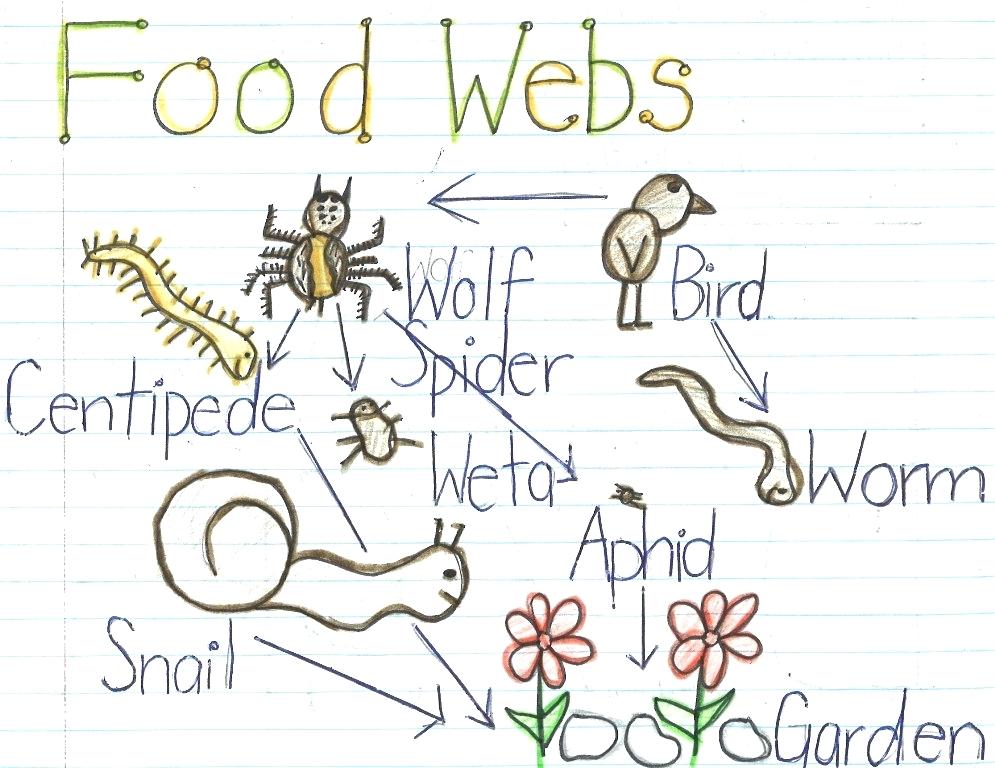 Food Webs
Wolf
Spider
Bird
Centipede
Weta
Worm
Aphid
Snail
Garden